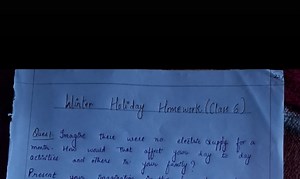 Winter Holiday Homework (Class 6)
Ques1. Imagine there were no electric supply for a
month. How would that affect your day to day
activities and others in your family?
Present your